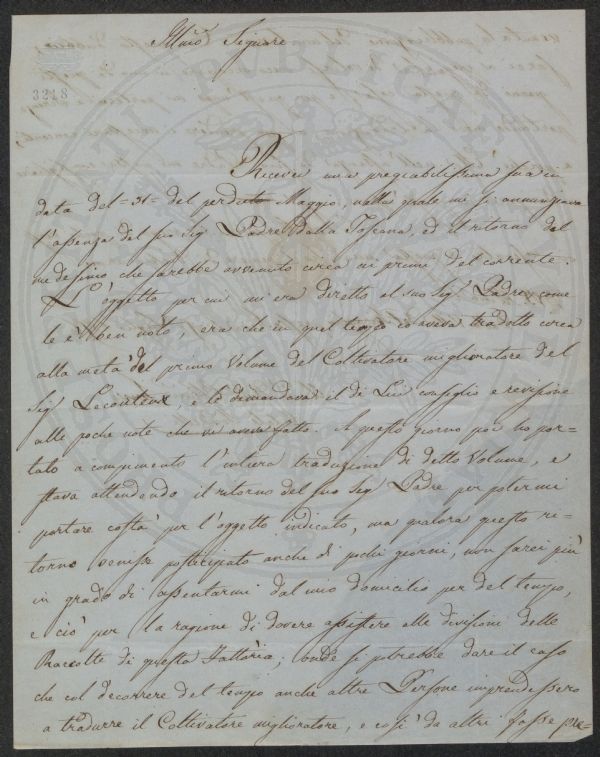 Illmo Signore
3218
Ricevei una pregiabilissima sua in
data del = 31 = del perduto Maggio, nella quale mi si annunziava
l'assenza del suo Sig. Padre dalla Toscana, ed il ritorno del
medesimo che sarebbe avvenuto circa ai primi del corrente.
L'oggetto per cui mi era diretto al suo Sig. Padre, come
le è ben noto, era che in quel tempo io aveva tradotto circa
alla metà del primo Volume del Coltivatore miglioratore del
Sig. Lecouteux, e le dimandava il di Lui consiglio e revisione
alle poche note che vi aveva fatto. A questo giorno poi ho por-
tato a compimento l'intiera traduzione di detto Volume, e
stava attendendo il ritorno del suo Sig. Padre per potermi
portare costà per l'oggetto indicato, ma qualora questo ri-
torno venisse posticipato anche di pochi giorni, non sarei più
in grado di assentarmi dal mio domicilio per del tempo,
e ciò per la ragione di dovere assistere alle divisioni delle
Raccolte di questa Fattoria; onde si potrebbe dare il caso
che col decorrere del tempo anche altre Persone imprendessero
a tradurre il Coltivatore miglioratore, e così da altri fosse pre-